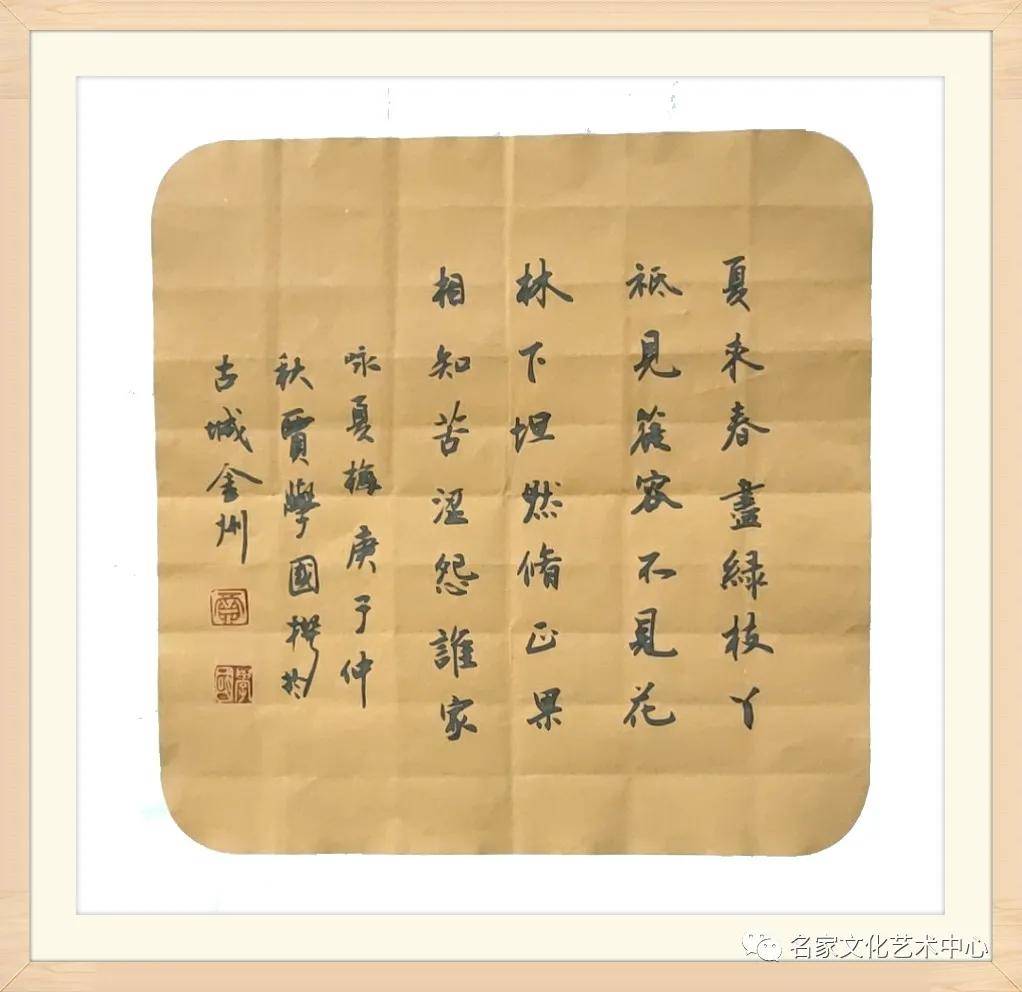 夏来春盡緑枝丫
祗見蓯容不見花
林下坦然脩正果
相知苦涩怨誰家
咏夏梅庚子仲
秋賈學國撰於
古城金州
名家文化艺术中心